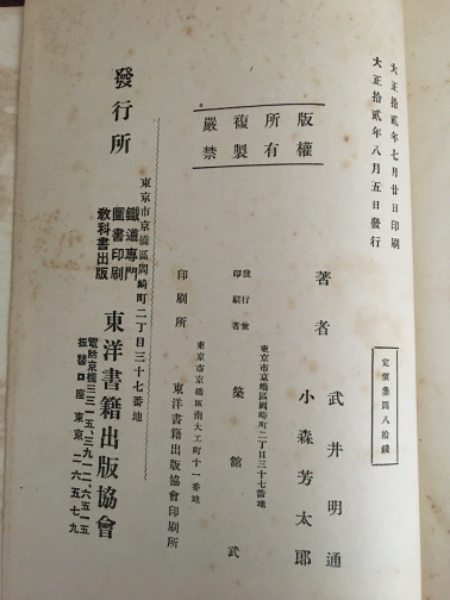 大正拾貳年七月廿日印刷
大正拾貳年八月五日發行
定價參圓八拾錢
版權所有
複製嚴禁
著者 武井明通
小森芳太郎
發行兼印刷者 築舘武
東京市京橋區岡崎町二丁目三十七番地
東京市京橋區南大工町十一番地
印刷所 東洋書籍出版協會印刷所
東京市京橋區岡崎町二丁目三十七番地
發行所
鐵道專門
圖書印刷
敎科書出版
東洋書籍出版協會
電話京橋三三一五、三九一二、六五一五
振替口座東京二六五七九